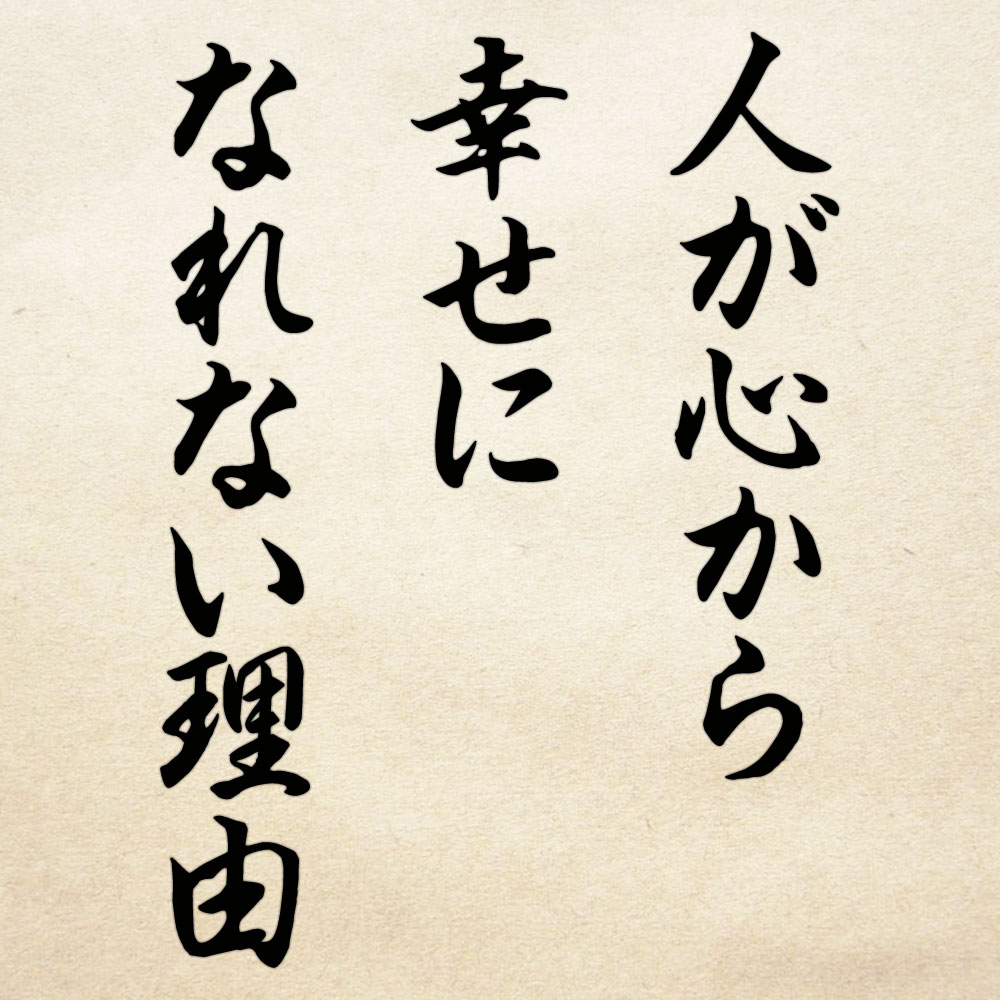 人が心から
幸せに
なれない理由